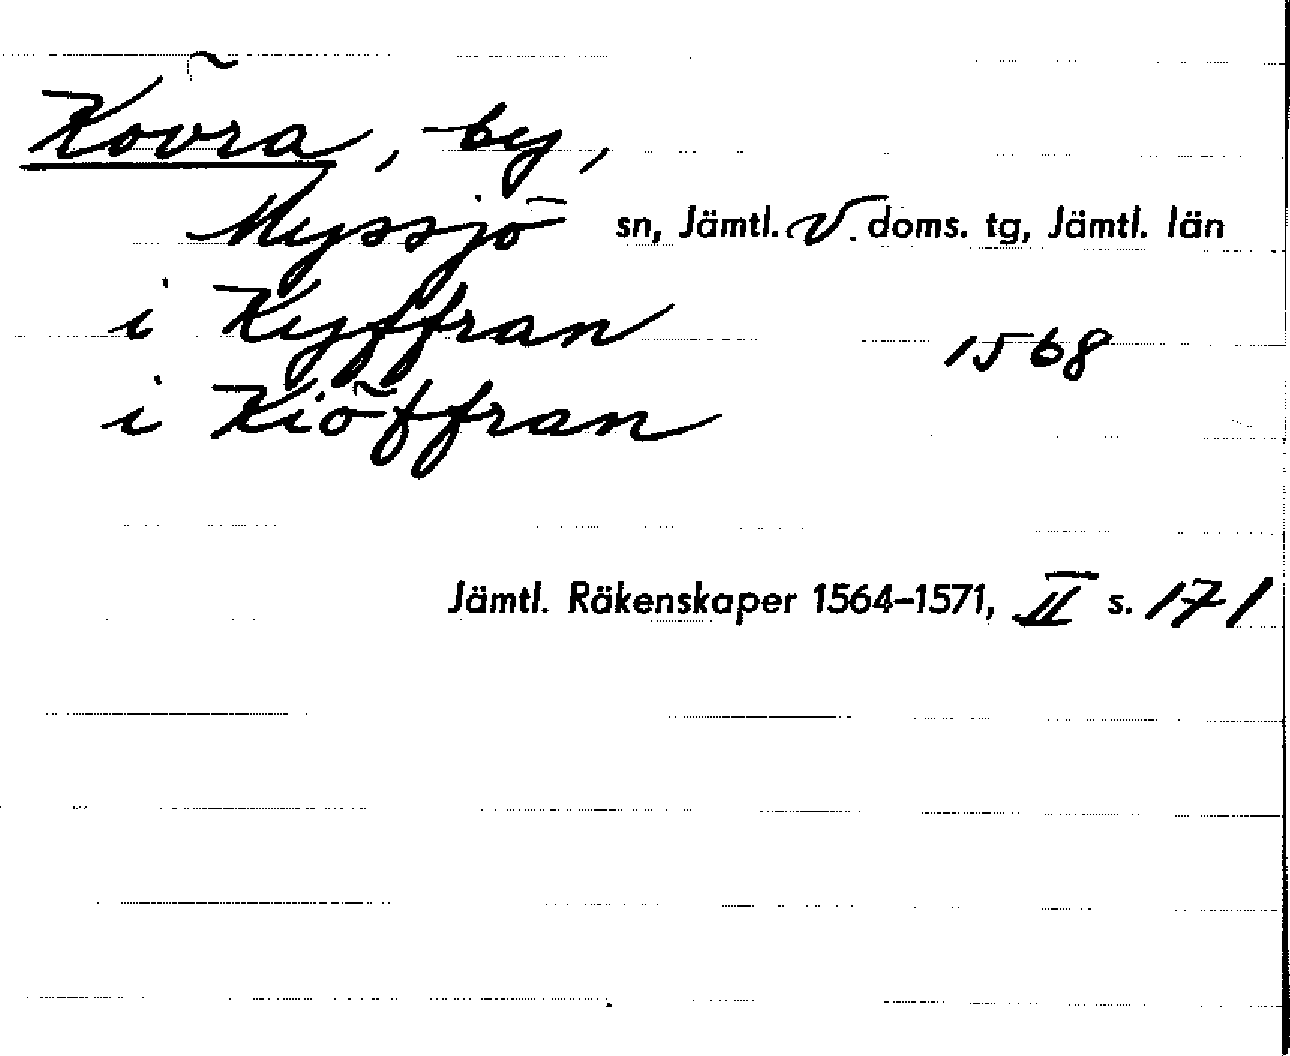 Kövra, by,
Myssjö sn, Jämtl. V. doms. tg, Jämtl. län
i Kyffran 1568
i Kiöffran
Jämtl. Räkenskaper 1564–1571, II s. 171